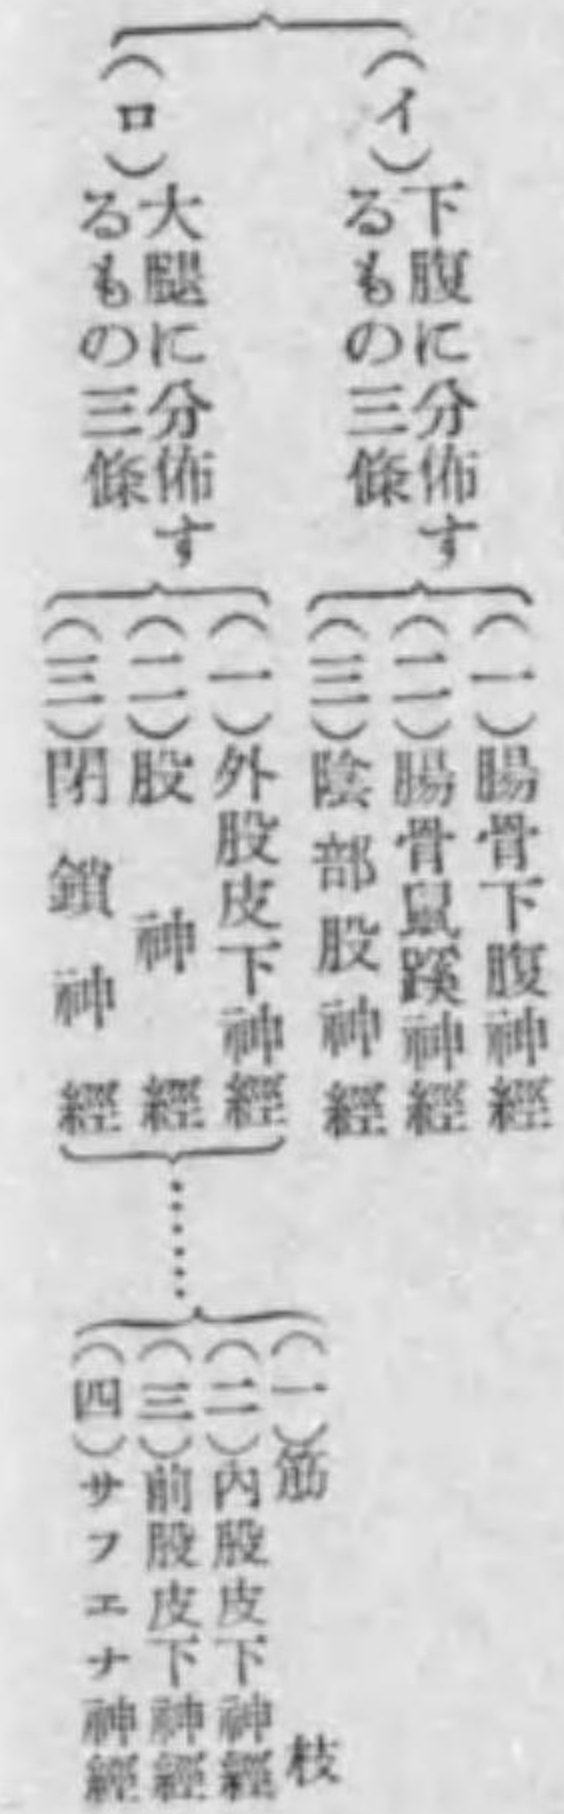 （イ）下腹に分佈す
るもの三條
（一）腸骨下腹神經
（二）腸骨鼠蹊神經
（三）陰部股神經
（ロ）大腿に分佈す
るもの三條
（一）外股皮下神經
（二）股神經
（三）閉鎖神經
（一）筋枝
（二）內股皮下神經
（三）前股皮下神經
（四）サフエナ神經